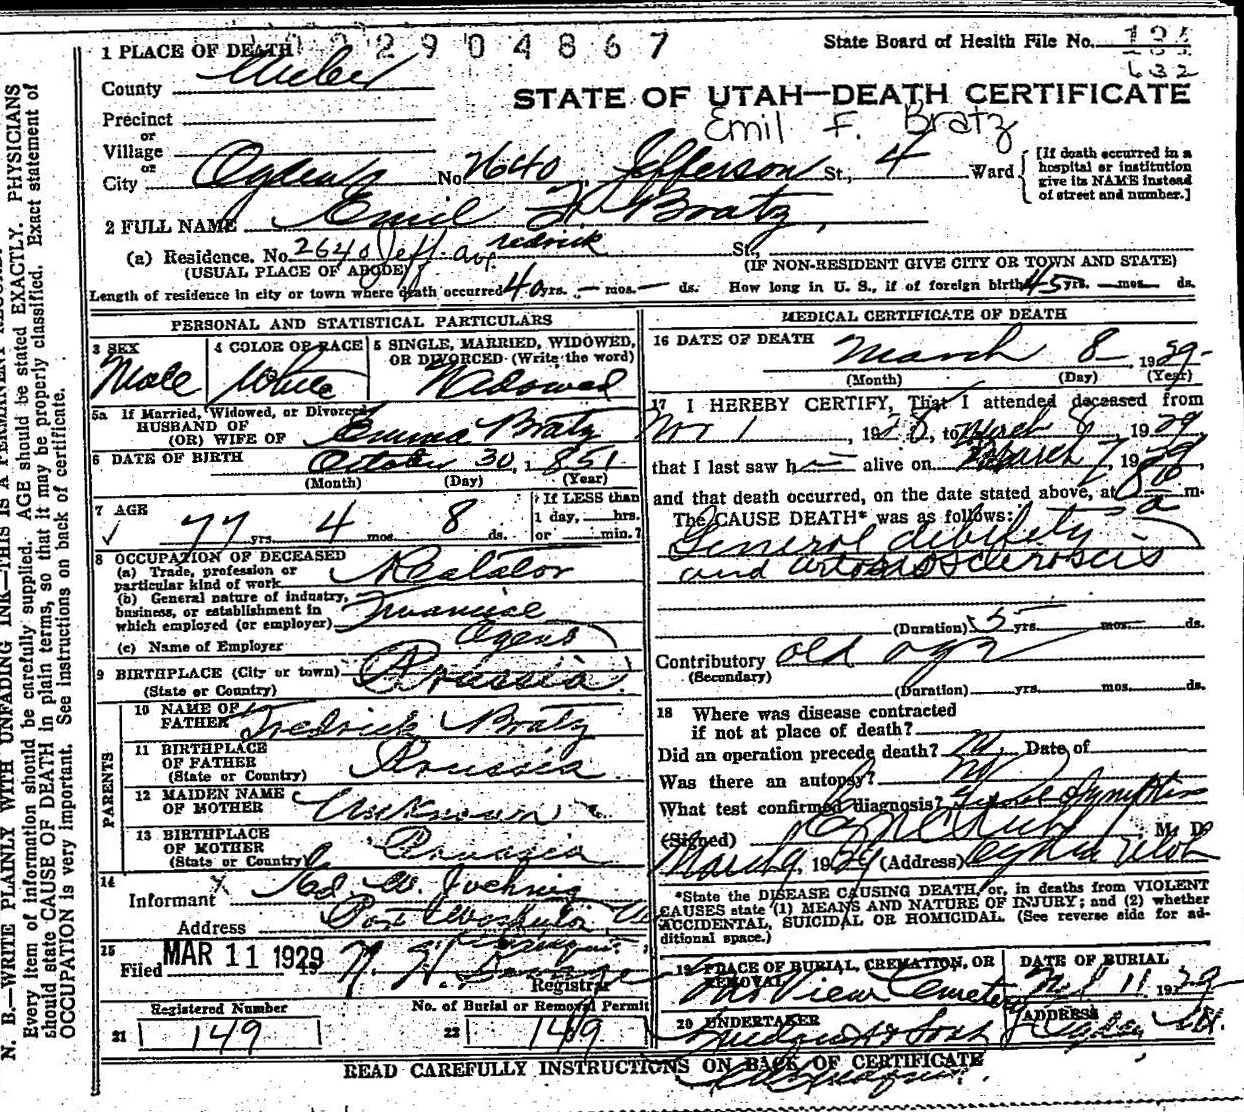 022904867
State Board of Health File No.
632
1 PLACE OF DEATH
County Weber
STATE OF UTAH—DEATH CERTIFICATE
Emil F. Bratz
Precinct
or
Village
or
City Ogden No 2640 Jefferson St., 4 Ward
[If death occurred in a hospital or institution give its NAME instead of street and number.]
2 FULL NAME Emil F. Bratz
redrick
(a) Residence. No. 2640 Jeff. ave St.,
(USUAL PLACE OF ABODE) (IF NON-RESIDENT GIVE CITY OR TOWN AND STATE)
Length of residence in city or town where death occurred 40 yrs. — mos. — ds. How long in U. S., if of foreign birth 45 yrs. — mos. ds.
PERSONAL AND STATISTICAL PARTICULARS
3 SEX Male
4 COLOR OR RACE White
5 SINGLE, MARRIED, WIDOWED, OR DIVORCED (Write the word) Widowed
5a If Married, Widowed, or Divorced
HUSBAND OF
(OR) WIFE OF Emma Bratz
6 DATE OF BIRTH October 30, 1851
(Month) (Day) (Year)
7 AGE 77 yrs. 4 mos. 8 ds.
If LESS than
1 day, hrs.
or min.?
8 OCCUPATION OF DECEASED
(a) Trade, profession or
particular kind of work
(b) General nature of industry,
business, or establishment in
which employed (or employer)
(c) Name of Employer
9 BIRTHPLACE (City or town) Prussia
(State or Country)
PARENTS
10 NAME OF FATHER Fredrick Bratz
11 BIRTHPLACE OF FATHER (State or Country) Prussia
12 MAIDEN NAME OF MOTHER Unknown
13 BIRTHPLACE OF MOTHER (State or Country) Prussia
14
Informant
Address
15
Filed MAR 11 1929 19
Registrar
Registered Number
21 149
No. of Burial or Removal Permit
22 149
MEDICAL CERTIFICATE OF DEATH
16 DATE OF DEATH March 8 1929
(Month) (Day) (Year)
17 I HEREBY CERTIFY, That I attended deceased from
Nov 1, 1928, to March 8 1929
that I last saw h alive on March 7, 1929,
and that death occurred, on the date stated above, at 8 a m.
The CAUSE DEATH* was as follows:
General debility
and arteriosclerosis
(Duration) 5 yrs. mos. ds.
Contributory old age
(Secondary)
(Duration) yrs. mos. ds.
18 Where was disease contracted
if not at place of death?
Did an operation precede death? no. Date of
Was there an autopsy? no
What test confirmed diagnosis?
(Signed) M. D.
March 9, 1929 (Address) Ogden Utah
*State the DISEASE CAUSING DEATH, or, in deaths from VIOLENT
CAUSES state (1) MEANS AND NATURE OF INJURY; and (2) whether
ACCIDENTAL, SUICIDAL OR HOMICIDAL. (See reverse side for additional space.)
19 PLACE OF BURIAL, CREMATION, OR REMOVAL
View Cemetery
DATE OF BURIAL
11 1929
20 UNDERTAKER
ADDRESS
Ogden Ut.
READ CAREFULLY INSTRUCTIONS ON BACK OF CERTIFICATE
N. B.—WRITE PLAINLY WITH UNFADING INK—THIS IS A PERMANENT RECORD.
Every item of information should be carefully supplied. AGE should be stated EXACTLY. PHYSICIANS
should state CAUSE OF DEATH in plain terms, so that it may be properly classified. Exact statement of
OCCUPATION is very important. See instructions on back of certificate.